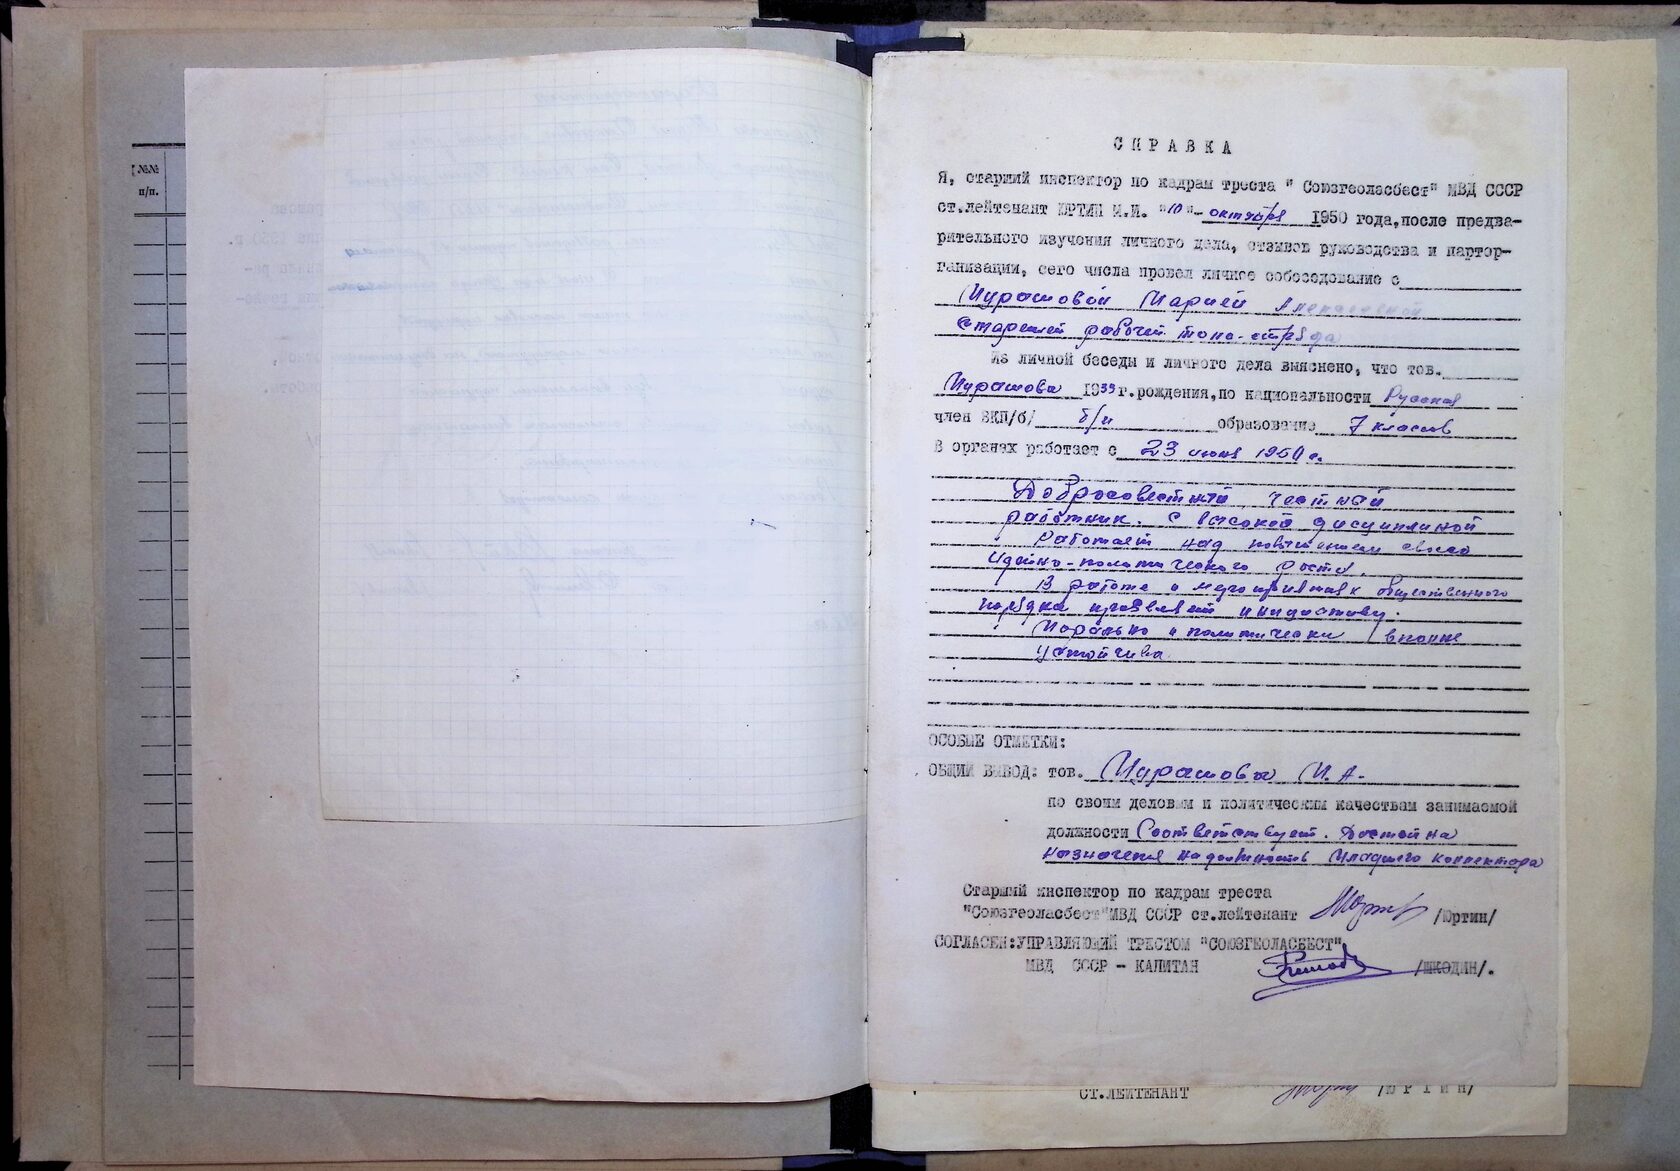 №№
п/п.
СПРАВКА
Я, старший инспектор по кадрам треста " Союзгеоласбест" МВД СССР
ст.лейтенант ЮРТИН М.И. "10"- октября 1950 года,после предва-
рительного изучения личного дела, отзывов руководства и партор-
ганизации, сего числа провел личное собеседование с
Мурашовой Марией
Старшей рабочей топо-отряда
Из личной беседы и личного дела выяснено, что тов.
Мурашова 1933 г.рождения,по национальности Русская
член ВКП/б/ б/п образование 7 классов
В органах работает с 23 июня 1950 г.
Добросовестный, честный
работник. С высокой дисциплиной
Работает над повышением своего
идейно-политического роста.
В работе и мероприятиях общественного
порядка проявляет инициативу.
Морально и политически вполне
устойчива
ОСОБЫЕ ОТМЕТКИ:
ОБЩИЙ ВЫВОД: тов. Мурашова М.А.
по своим деловым и политическим качествам занимаемой
должности Соответствует. Достойна
назначения на должность младшего коллектора
Старший инспектор по кадрам треста
"Союзгеоласбест"МВД СССР ст.лейтенант /Юртин/
СОГЛАСЕН:УПРАВЛЯЮЩИЙ ТРЕСТОМ "СОЮЗГЕОЛАСБЕСТ"
МВД СССР - КАПИТАН /ШКОДИН/.
СТ.ЛЕЙТЕНАНТ /ЮРТИН/